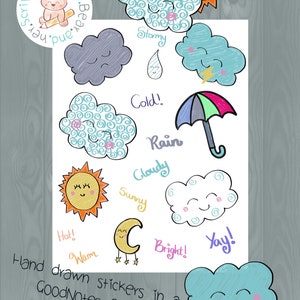 Bear and her scri
Stormy
Cold!
Rain
Cloudy
Sunny
Hot!
Warm
Bright!
Yay!
Hand drawn stickers in a
GoodNotes